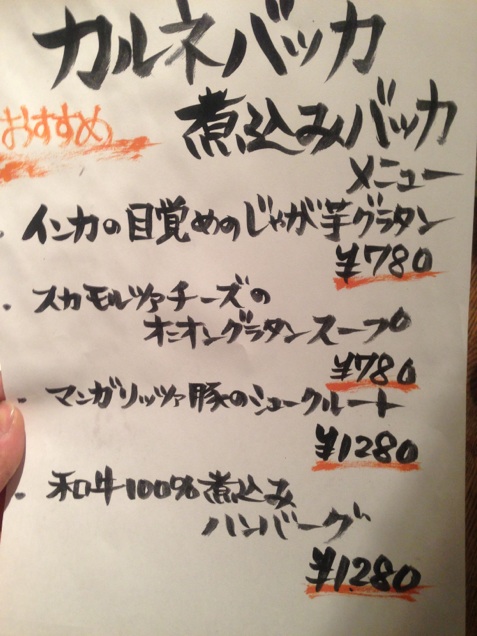 カルネバッカ
おすすめ
煮込みバッカ
メニュー
・インカの目覚めのじゃが芋グラタン
¥780
・スカモルツァチーズの
オニオングラタンスープ
¥780
・マンガリッツァ豚のシュークルート
¥1280
・和牛100%煮込み
ハンバーグ
¥1,280